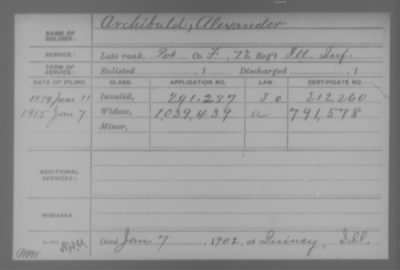 NAME OF SOLDIER: Archibald, Alexander
SERVICE: Late rank, Pvt Co. F, 72 Reg't Ill. Inf.
TERM OF SERVICE: Enlisted , 1 Discharged , 1
DATE OF FILING. CLASS. APPLICATION NO. LAW. CERTIFICATE NO.
1879 June 11 Invalid, 291,287 212,260
1915 Jan 7 Widow, 1,039,439 a 791,578
Minor,
ADDITIONAL SERVICES:
REMARKS:
Died Jan 7, 1902, at Quincy, Ill.